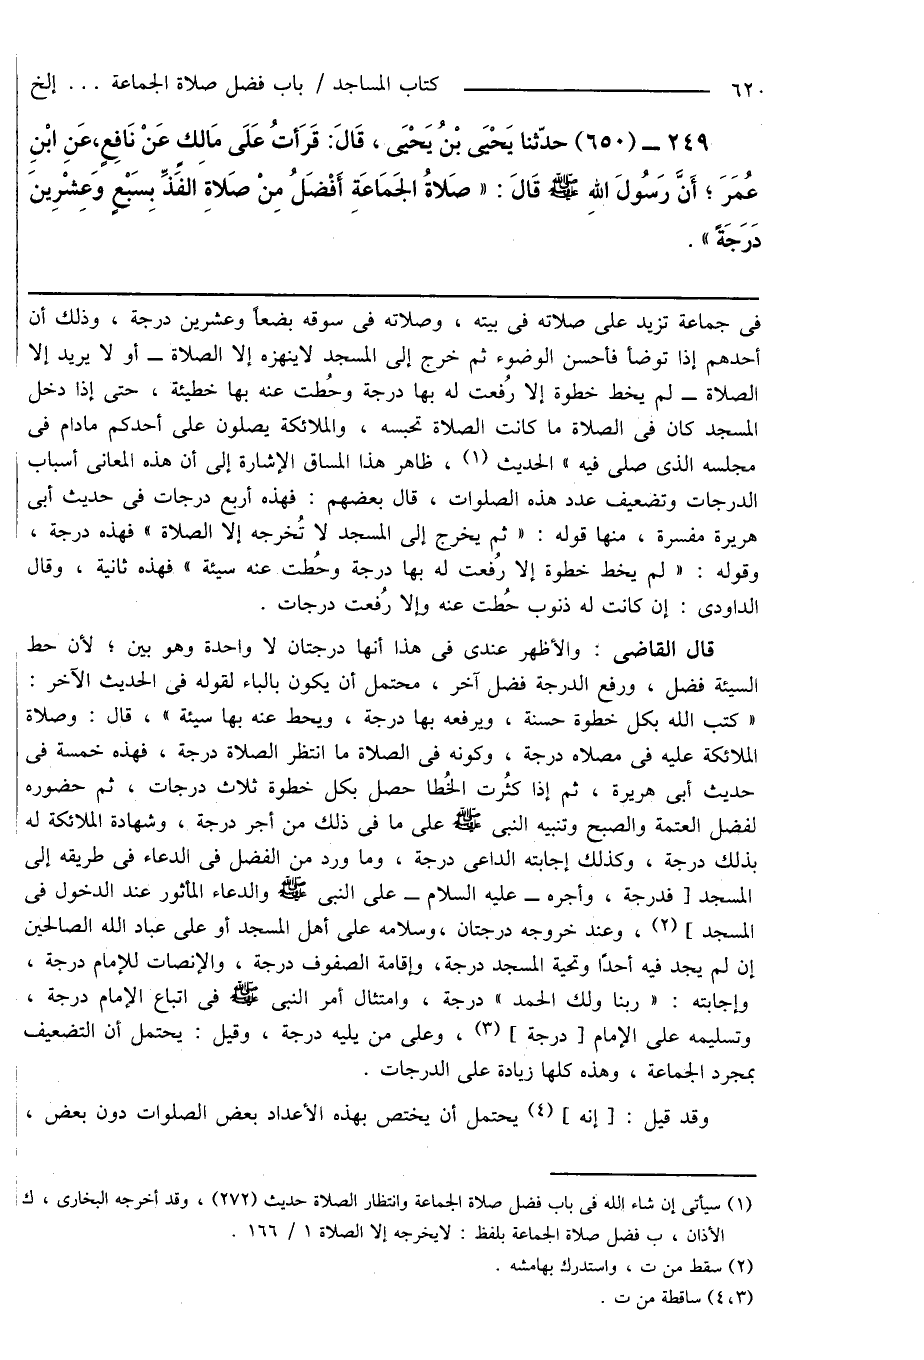 ٦٢٠ ــــــــــ كتاب المساجد / باب فضل صلاة الجماعة ... إلخ
٢٤٩ ــ (٦٥٠) حدّثنا يَحْيَى بْنُ يَحْيَى ، قَالَ: قَرَأتُ عَلَى مَالِكٍ عَنْ نَافِعٍ،عَنِ ابْنِ
عُمَرَ ؛ أَنَّ رَسُولَ اللهِ ﷺ قَالَ : « صَلاةُ الجَمَاعَةِ أَفْضَلُ مِنْ صَلاةِ الفَذِّ بِسَبْعٍ وَعشْرِينَ
دَرَجَةً » .
فى جماعة تزيد على صلاته فى بيته ، وصلاته فى سوقه بضعاً وعشرين درجة ، وذلك أن
أحدهم إذا توضأ فأحسن الوضوء ثم خرج إلى المسجد لاينهزه إلا الصلاة ــ أو لا يريد إلا
الصلاة ــ لم يخط خطوة إلا رُفعت له بها درجة وحُطت عنه بها خطيئة ، حتى إذا دخل
المسجد كان فى الصلاة ما كانت الصلاة تحبسه ، والملائكة يصلون على أحدكم مادام فى
مجلسه الذى صلى فيه » الحديث (١) ، ظاهر هذا المساق الإشارة إلى أن هذه المعانى أسباب
الدرجات وتضعيف عدد هذه الصلوات ، قال بعضهم : فهذه أربع درجات فى حديث أبى
هريرة مفسرة ، منها قوله : « ثم يخرج إلى المسجد لا تُخرجه إلا الصلاة » فهذه درجة ،
وقوله : « لم يخط خطوة إلا رُفعت له بها درجة وحُطت عنه سيئة » فهذه ثانية ، وقال
الداودى : إن كانت له ذنوب حُطت عنه وإلا رُفعت درجات .
قال القاضى : والأظهر عندى فى هذا أنها درجتان لا واحدة وهو بين ؛ لأن حط
السيئة فضل ، ورفع الدرجة فضل آخر ، محتمل أن يكون بالباء لقوله فى الحديث الآخر :
« كتب الله بكل خطوة حسنة ، ويرفعه بها درجة ، ويحط عنه بها سيئة » ، قال : وصلاة
الملائكة عليه فى مصلاه درجة ، وكونه فى الصلاة ما انتظر الصلاة درجة ، فهذه خمسة فى
حديث أبى هريرة ، ثم إذا كثُرت الخُطا حصل بكل خطوة ثلاث درجات ، ثم حضوره
لفضل العتمة والصبح وتنبيه النبى ﷺ على ما فى ذلك من أجر درجة ، وشهادة الملائكة له
بذلك درجة ، وكذلك إجابته الداعى درجة ، وما ورد من الفضل فى الدعاء فى طريقه إلى
المسجد [ فدرجة ، وأجره ــ عليه السلام ــ على النبى ﷺ والدعاء المأثور عند الدخول فى
المسجد ] (٢) ، وعند خروجه درجتان ،وسلامه على أهل المسجد أو على عباد الله الصالحين
إن لم يجد فيه أحدًا وتحية المسجد درجة، وإقامة الصفوف درجة ، والإنصات للإمام درجة ،
وإجابته : « ربنا ولك الحمد » درجة ، وامتثال أمر النبى ﷺ فى اتباع الإمام درجة ،
وتسليمه على الإمام [ درجة ] (٣) ، وعلى من يليه درجة ، وقيل : يحتمل أن التضعيف
بمجرد الجماعة ، وهذه كلها زيادة على الدرجات .
وقد قيل : [ إنه ] (٤) يحتمل أن يختص بهذه الأعداد بعض الصلوات دون بعض ،
(١) سيأتى إن شاء الله فى باب فضل صلاة الجماعة وانتظار الصلاة حديث (٢٧٢) ، وقد أخرجه البخارى ، ك
الأذان ، ب فضل صلاة الجماعة بلفظ : لايخرجه إلا الصلاة ١ / ١٦٦ .
(٢) سقط من ت ، واستدرك بهامشه .
(٤،٣) ساقطة من ت .